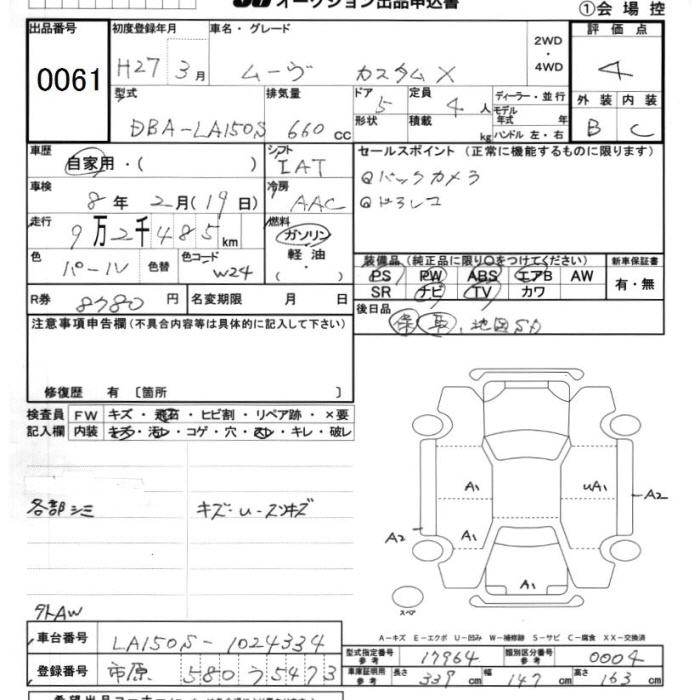 オークション出品申込書 ①会場控
出品番号 0061
初度登録年月 H27年 3月
車名・グレード ムーヴ カスタムX
2WD・4WD
評価点 4
外装 B 内装 C
型式 DBA-LA150S
排気量 660cc
ドア 5 形状
定員 4人 積載 kg
ディーラー・並行
モデル年式 年
ハンドル 左・右
車歴 自家用・( )
シフト IAT
車検 8年 2月(19日)
冷房 AAC
走行 9万2千485km
燃料 ガソリン・軽油・( )
色 パール 色替 色コード W24
R券 8780円 名変期限 月 日
セールスポイント(正常に機能するものに限ります)
バックカメラ
ドラレコ
装備品(純正品に限り○をつけてください) 新車保証書
PS PW ABS エアB AW 有・無
SR ナビ TV カワ
後日品 保 取、地図SD
注意事項申告欄(不具合内容等は具体的に記入して下さい)
修復歴 有 〔箇所 〕
検査員記入欄 FW キズ・飛石・ヒビ割・リペア跡・×要
内装 キズ・汚レ・コゲ・穴・スレ・キレ・破レ
各部シミ キズ・U・スリキズ
A1 UA1 A2
A2 A1
A1
スペア
外AW
A-キズ E-エクボ U-凹み W-補修跡 S-サビ C-腐食 XX-交換済
車台番号 LA150S-1024334
登録番号 市原 580 ウ 5473
型式指定番号 参考 17964 類別区分番号 参考 0004
車庫証明用 参考 長さ 339cm 幅 147cm 高さ 163cm